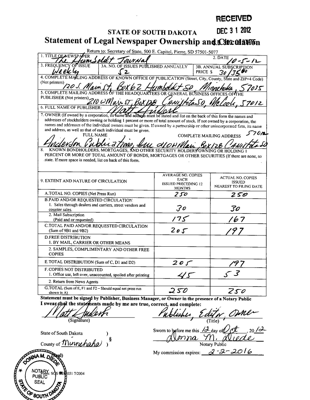 RECEIVED
DEC 31 2012
STATE OF SOUTH DAKOTA
Statement of Legal Newspaper Ownership and Circulation
Return to: Secretary of State, 500 E. Capitol, Pierre, SD 57501-5077
1. TITLE OF NEWSPAPER
The Humboldt Journal
2. DATE
10-5-12
3. FREQUENCY OF ISSUE
Weekly
3A. NO. OF ISSUES PUBLISHED ANNUALLY
52
3B. ANNUAL SUBSCRIPTION
PRICE $
4. COMPLETE MAILING ADDRESS OF KNOWN OFFICE OF PUBLICATION (Street, City, County, State and ZIP+4 Code)
(Not printers)
120 S Main St, Box 62 Humboldt SD Minnehaha 57035
5. COMPLETE MAILING ADDRESS OF THE HEADQUARTERS OR GENERAL BUSINESS OFFICES OF THE
PUBLISHER (Not printer)
6. FULL NAME OF PUBLISHER:
Matt Anderson
7. OWNER (If owned by a corporation, its name and address must be stated and list on the back of this form the names and
addresses of stockholders owning or holding 1 percent or more of total amount of stock. If not owned by a corporation, the
names and addresses of the individual owners must be given. If owned by a partnership or other unincorporated firm, its name
and address, as well as that of each individual must be given.
FULL NAME
COMPLETE MAILING ADDRESS
8. KNOWN BONDHOLDERS, MORTGAGEES, AND OTHER SECURITY HOLDERS OWNING OR HOLDING 1
PERCENT OR MORE OF TOTAL AMOUNT OF BONDS, MORTGAGES OR OTHER SECURITIES (If there are none, so
state. If more space is needed, list on back of this form.
9. EXTENT AND NATURE OF CIRCULATION
AVERAGE NO. COPIES
EACH
ISSUED PRECEDING 12
MONTHS
ACTUAL NO. COPIES
ISSUED
NEAREST TO FILING DATE
A. TOTAL NO. COPIES (Net Press Run)
250
250
B. PAID AND/OR REQUESTED CIRCULATION
1. Sales through dealers and carriers, street vendors and
counter sales
30
30
2. Mail Subscription
(Paid and or requested)
175
167
C. TOTAL PAID AND/OR REQUESTED CIRCULATION
(Sum of 9B1 and 9B2)
205
197
D. FREE DISTRIBUTION
1. BY MAIL, CARRIER OR OTHER MEANS
2. SAMPLES, COMPLIMENTARY AND OTHER FREE
COPIES
E. TOTAL DISTRIBUTION (Sum of C, D1 and D2)
205
197
F. COPIES NOT DISTRIBUTED
1. Office use, left over, unaccounted, spoiled after printing
45
53
2. Return from News Agents
G. TOTAL (Sum of E, F1 and F2 - Should equal net press run
shown in A)
250
250
Statement must be signed by Publisher, Business Manager, or Owner in the presence of a Notary Public
I swear that the statements made by me are true, correct, and complete:
(Signature)
Publisher, Editor, Owner
(Title)
State of South Dakota )
) §
County of Minnehaha )
Sworn to before me this 12 day of Oct 2012
Donna M. Diede
Notary Public
My commission expires: 2-2-2016
DONNA M. DIEDE
NOTARY
PUBLIC
SEAL
STATE OF SOUTH DAKOTA